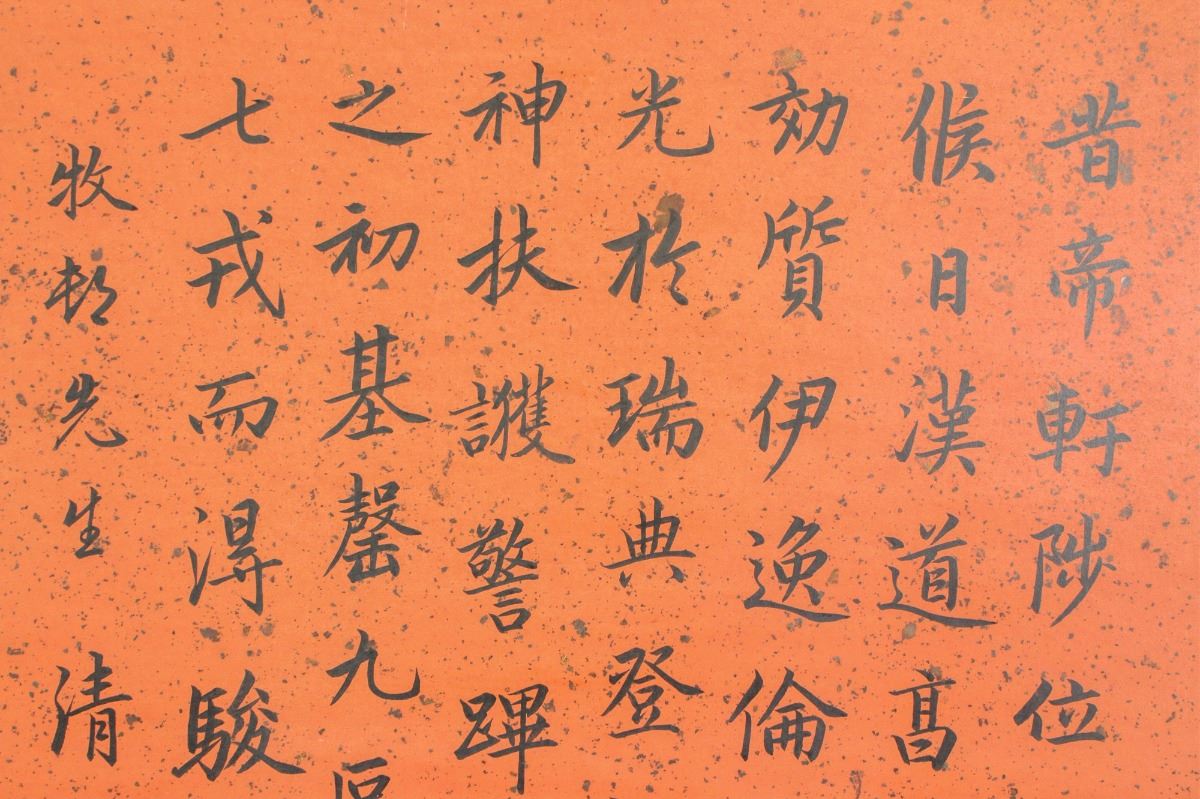 昔帝軒陟位
候日漢道高
効質伊逸倫
光於瑞典登
神扶護警蹕
之初基罄九
七戎而得駿
牧邨先生清